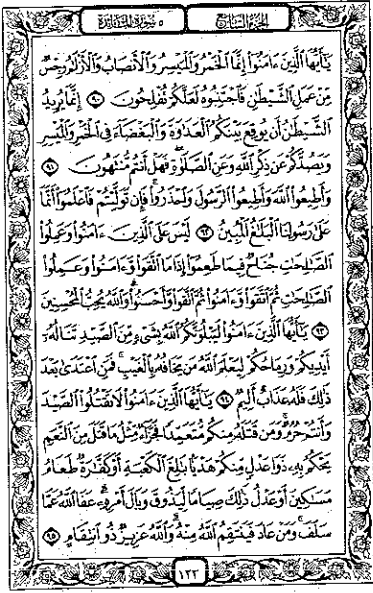 الجزء السابع
٥ سورة المائدة
يَٰٓأَيُّهَا ٱلَّذِينَ ءَامَنُوٓا۟ إِنَّمَا ٱلْخَمْرُ وَٱلْمَيْسِرُ وَٱلْأَنصَابُ وَٱلْأَزْلَٰمُ رِجْسٌ
مِّنْ عَمَلِ ٱلشَّيْطَٰنِ فَٱجْتَنِبُوهُ لَعَلَّكُمْ تُفْلِحُونَ ٩٠ إِنَّمَا يُرِيدُ
ٱلشَّيْطَٰنُ أَن يُوقِعَ بَيْنَكُمُ ٱلْعَدَٰوَةَ وَٱلْبَغْضَآءَ فِى ٱلْخَمْرِ وَٱلْمَيْسِرِ
وَيَصُدَّكُمْ عَن ذِكْرِ ٱللَّهِ وَعَنِ ٱلصَّلَوٰةِ فَهَلْ أَنتُم مُّنتَهُونَ ٩١
وَأَطِيعُوا۟ ٱللَّهَ وَأَطِيعُوا۟ ٱلرَّسُولَ وَٱحْذَرُوا۟ فَإِن تَوَلَّيْتُمْ فَٱعْلَمُوٓا۟ أَنَّمَا
عَلَىٰ رَسُولِنَا ٱلْبَلَٰغُ ٱلْمُبِينُ ٩٢ لَيْسَ عَلَى ٱلَّذِينَ ءَامَنُوا۟ وَعَمِلُوا۟
ٱلصَّٰلِحَٰتِ جُنَاحٌ فِيمَا طَعِمُوٓا۟ إِذَا مَا ٱتَّقَوا۟ وَّءَامَنُوا۟ وَعَمِلُوا۟
ٱلصَّٰلِحَٰتِ ثُمَّ ٱتَّقَوا۟ وَّءَامَنُوا۟ ثُمَّ ٱتَّقَوا۟ وَّأَحْسَنُوا۟ وَٱللَّهُ يُحِبُّ ٱلْمُحْسِنِينَ
٩٣ يَٰٓأَيُّهَا ٱلَّذِينَ ءَامَنُوا۟ لَيَبْلُوَنَّكُمُ ٱللَّهُ بِشَىْءٍ مِّنَ ٱلصَّيْدِ تَنَالُهُۥٓ
أَيْدِيكُمْ وَرِمَاحُكُمْ لِيَعْلَمَ ٱللَّهُ مَن يَخَافُهُۥ بِٱلْغَيْبِ فَمَنِ ٱعْتَدَىٰ بَعْدَ
ذَٰلِكَ فَلَهُۥ عَذَابٌ أَلِيمٌ ٩٤ يَٰٓأَيُّهَا ٱلَّذِينَ ءَامَنُوا۟ لَا تَقْتُلُوا۟ ٱلصَّيْدَ
وَأَنتُمْ حُرُمٌ وَمَن قَتَلَهُۥ مِنكُم مُّتَعَمِّدًا فَجَزَآءٌ مِّثْلُ مَا قَتَلَ مِنَ ٱلنَّعَمِ
يَحْكُمُ بِهِۦ ذَوَا عَدْلٍ مِّنكُمْ هَدْيًۢا بَٰلِغَ ٱلْكَعْبَةِ أَوْ كَفَّٰرَةٌ طَعَامُ
مَسَٰكِينَ أَوْ عَدْلُ ذَٰلِكَ صِيَامًا لِّيَذُوقَ وَبَالَ أَمْرِهِۦ عَفَا ٱللَّهُ عَمَّا
سَلَفَ وَمَنْ عَادَ فَيَنتَقِمُ ٱللَّهُ مِنْهُ وَٱللَّهُ عَزِيزٌ ذُو ٱنتِقَامٍ ٩٥
١٢٣